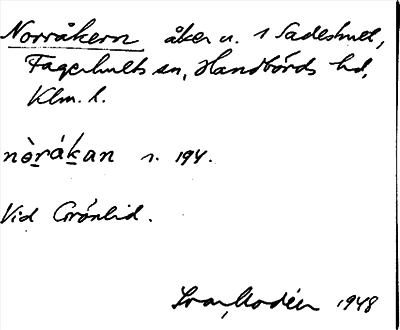 Norråkern åker u. 1 Sadeshult,
Fagerhults sn, Handbörds hd,
Klm. l.
nòråkan s. 194.
Vid Grönlid.
Ivar Modéer 1948